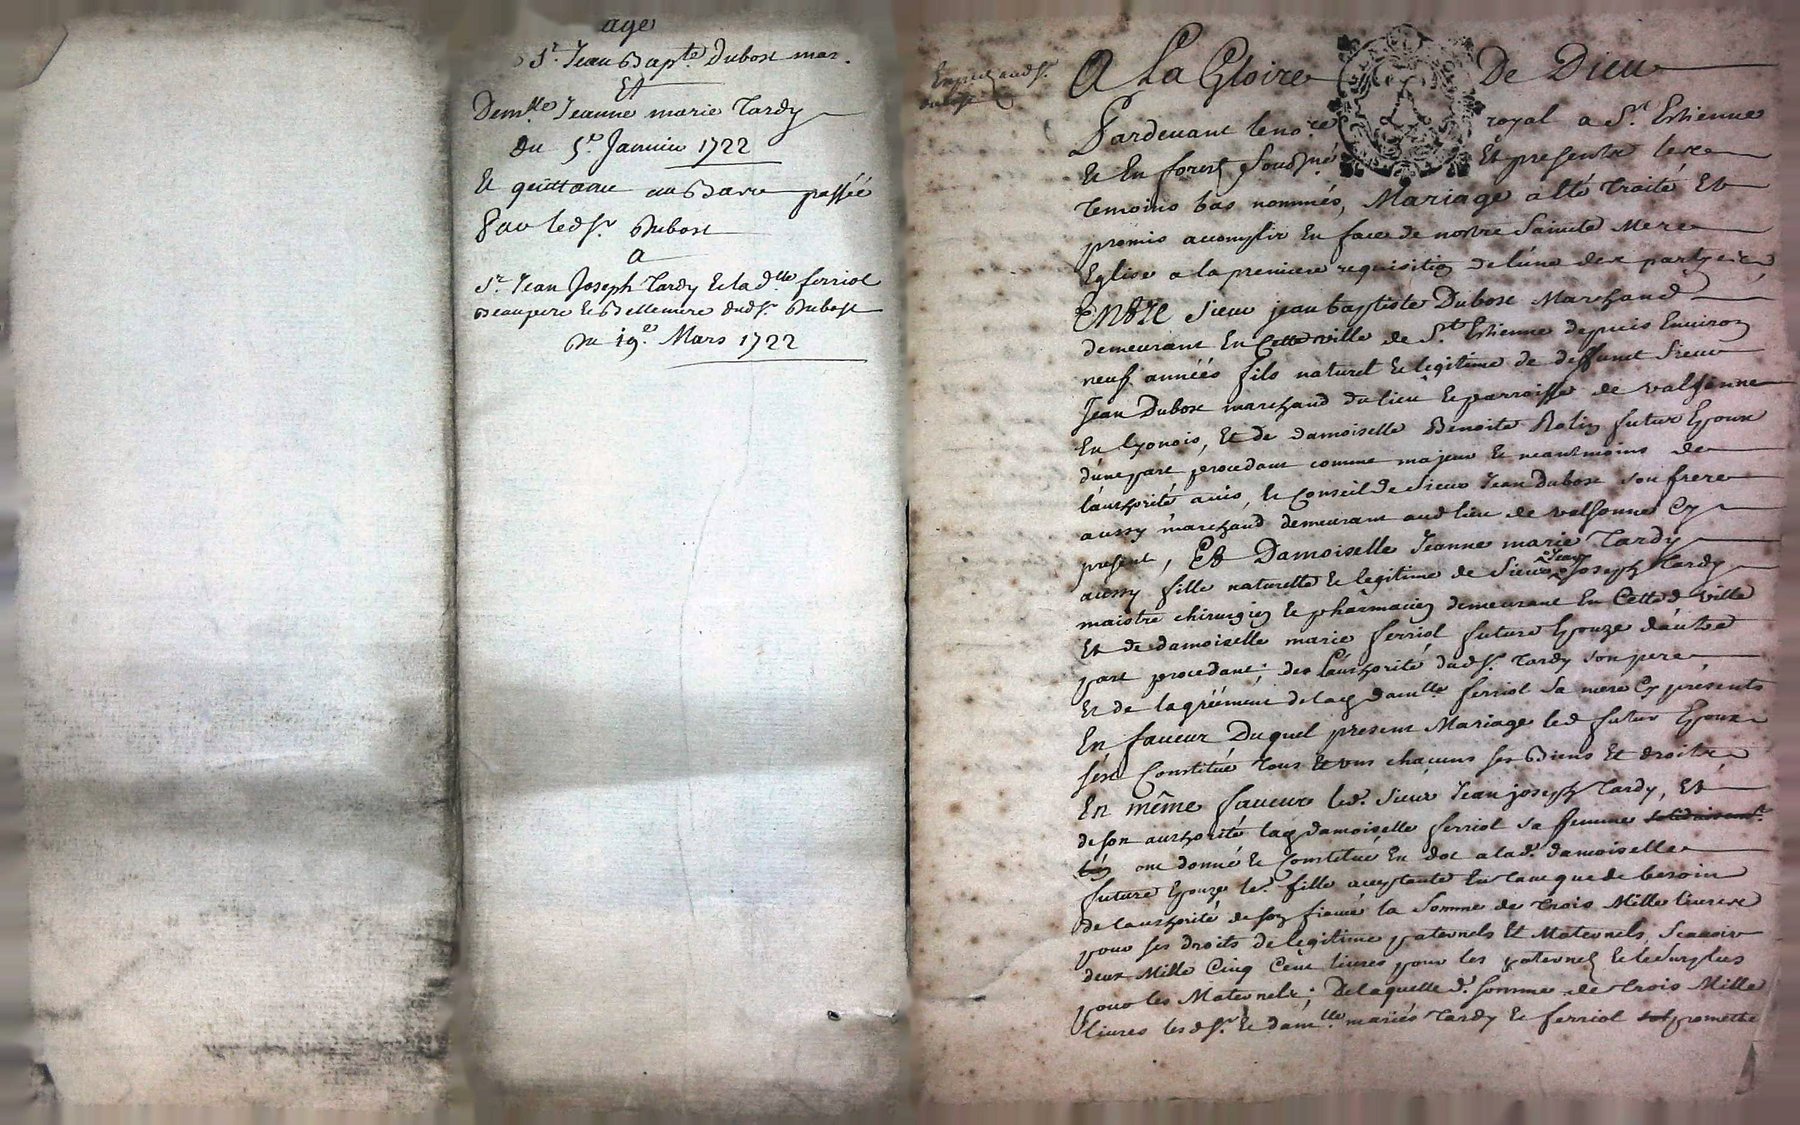 age
Sr. Jean Bapte. Dubost mar.
Et
Demlle Jeanne marie Tardy
du 5e. Janvier 1722
Et quittance au bas passée
Par led Sr. Dubost
a
Sr. Jean Joseph Tardy et la dlle ferriol
Beaupere et Bellemere dud Sr. Dubost
Du 19e. Mars 1722
Exped aud Sr.
dubost
A La Gloire De Dieu
Pardevant le nore royal a St. Estienne
et En forest soussné Et presents les
temoins bas nommés, Mariage a Eté traité Et
promis accomplir En face de nostre Sainte Mere
Eglise a la premiere requisition de l'une des partyes
Entre Sieur jean baptiste Dubost Marchand
demeurant En Cette ville de St. Estienne depuis Environ
neuf années fils naturel et legitime de deffunct Sieur
Jean Dubost marchand du lieu et parroisse de valsonne
En lyonois, Et de damoiselle Benoite Rolin futur Epoux
d'une part procedant comme majeur et neantmoins de
l'authorité avis, et Conseil de Sieur Jean Dubost son frere
aussy marchand demeurant aud lieu de valsonne Cy
present, Et Damoiselle Jeanne marie Tardy
aussy fille naturelle et legitime de Sieur Jean Joseph Tardy
maistre chirurgien et pharmacien demeurant En Cetted ville
Et de damoiselle marie ferriol future Epouze d'autre
part procedant; de l'authorité dud Sr. Tardy son pere
Et de l'agréement de lad damlle ferriol sa mere Cy présents
En faveur Duquel present Mariage led futur Epoux
s'est Constitué tous Et uns chacuns ses Biens Et droits
En même faveur led. Sieur Jean joseph Tardy, Et
de son authorité lad damoiselle ferriol sa femme solidairemt.
ont donné et Constitué En dot a lad. damoiselle
future Epouze leur fille acceptante En tant que de besoin
de l'authorité de son fiancé la Somme de trois Mille livres
pour ses droits de legitime paternels Et Maternels, Scavoir
deux Mille Cinq Cent livres pour les paternels et le Surplus
pour les Maternels; De laquelle d. somme de trois Mille
livres lesd Sr. et damlle mariés Tardy et ferriol promette